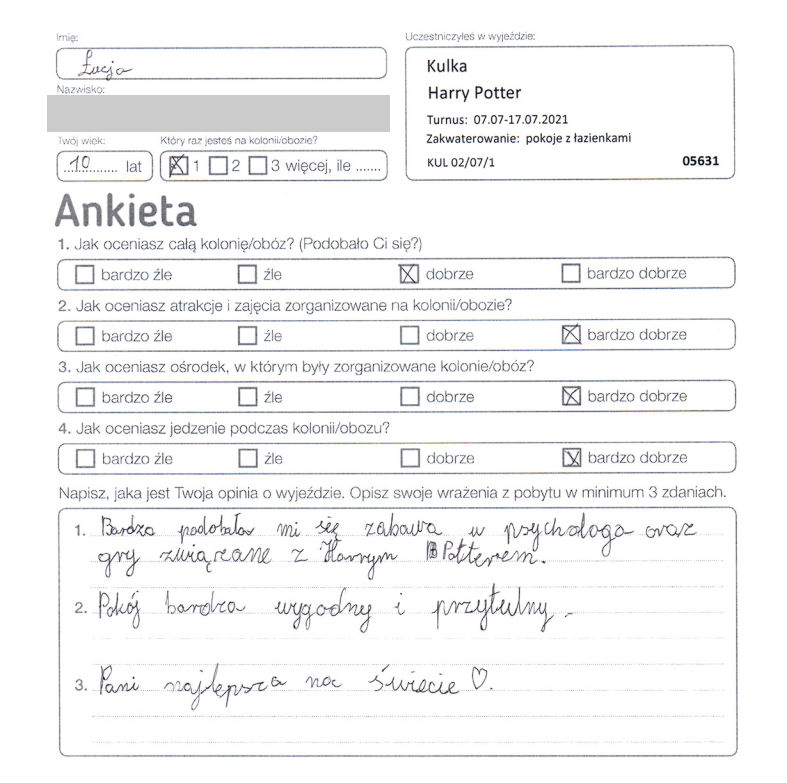 Imię:
Łucja
Nazwisko:
Twój wiek:
10 lat
Który raz jesteś na kolonii/obozie?
1 2 3 więcej, ile .......
Uczestniczyłeś w wyjeździe:
Kulka
Harry Potter
Turnus: 07.07-17.07.2021
Zakwaterowanie: pokoje z łazienkami
KUL 02/07/1 05631
Ankieta
1. Jak oceniasz całą kolonię/obóz? (Podobało Ci się?)
bardzo źle źle dobrze bardzo dobrze
2. Jak oceniasz atrakcje i zajęcia zorganizowane na kolonii/obozie?
bardzo źle źle dobrze bardzo dobrze
3. Jak oceniasz ośrodek, w którym były zorganizowane kolonie/obóz?
bardzo źle źle dobrze bardzo dobrze
4. Jak oceniasz jedzenie podczas kolonii/obozu?
bardzo źle źle dobrze bardzo dobrze
Napisz, jaka jest Twoja opinia o wyjeździe. Opisz swoje wrażenia z pobytu w minimum 3 zdaniach.
1. Bardzo podobała mi się zabawa w psychologa oraz
gry związane z Harrym Potterem.
2. Pokój bardzo wygodny i przytulny.
3. Pani najlepsza na świecie ♡.